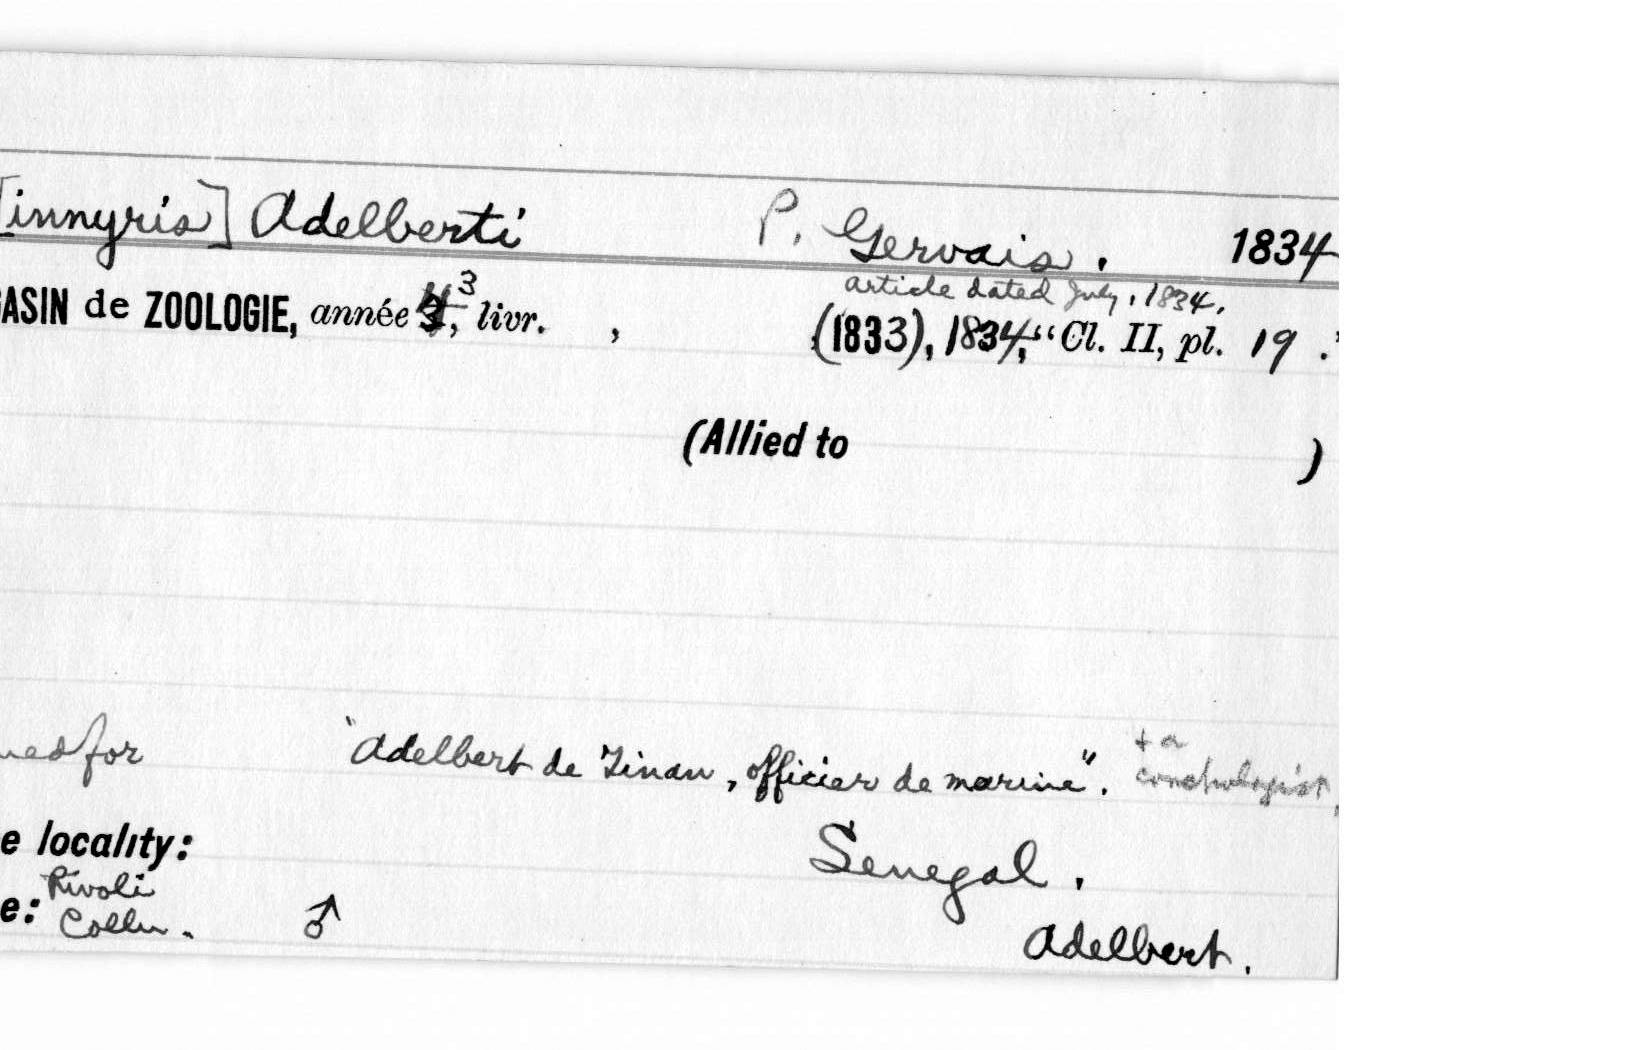 [innyris] Adelberti P. Gervais. 1834
article dated July, 1834.
GASIN de ZOOLOGIE, année 3, livr. , (1833), 1834, "Cl. II, pl. 19."
(Allied to )
ned for "Adelbert de Tinan, officier de marine". + a conchologist,
e locality: Senegal.
e: Rivoli Colln. ♂ Adelbert.